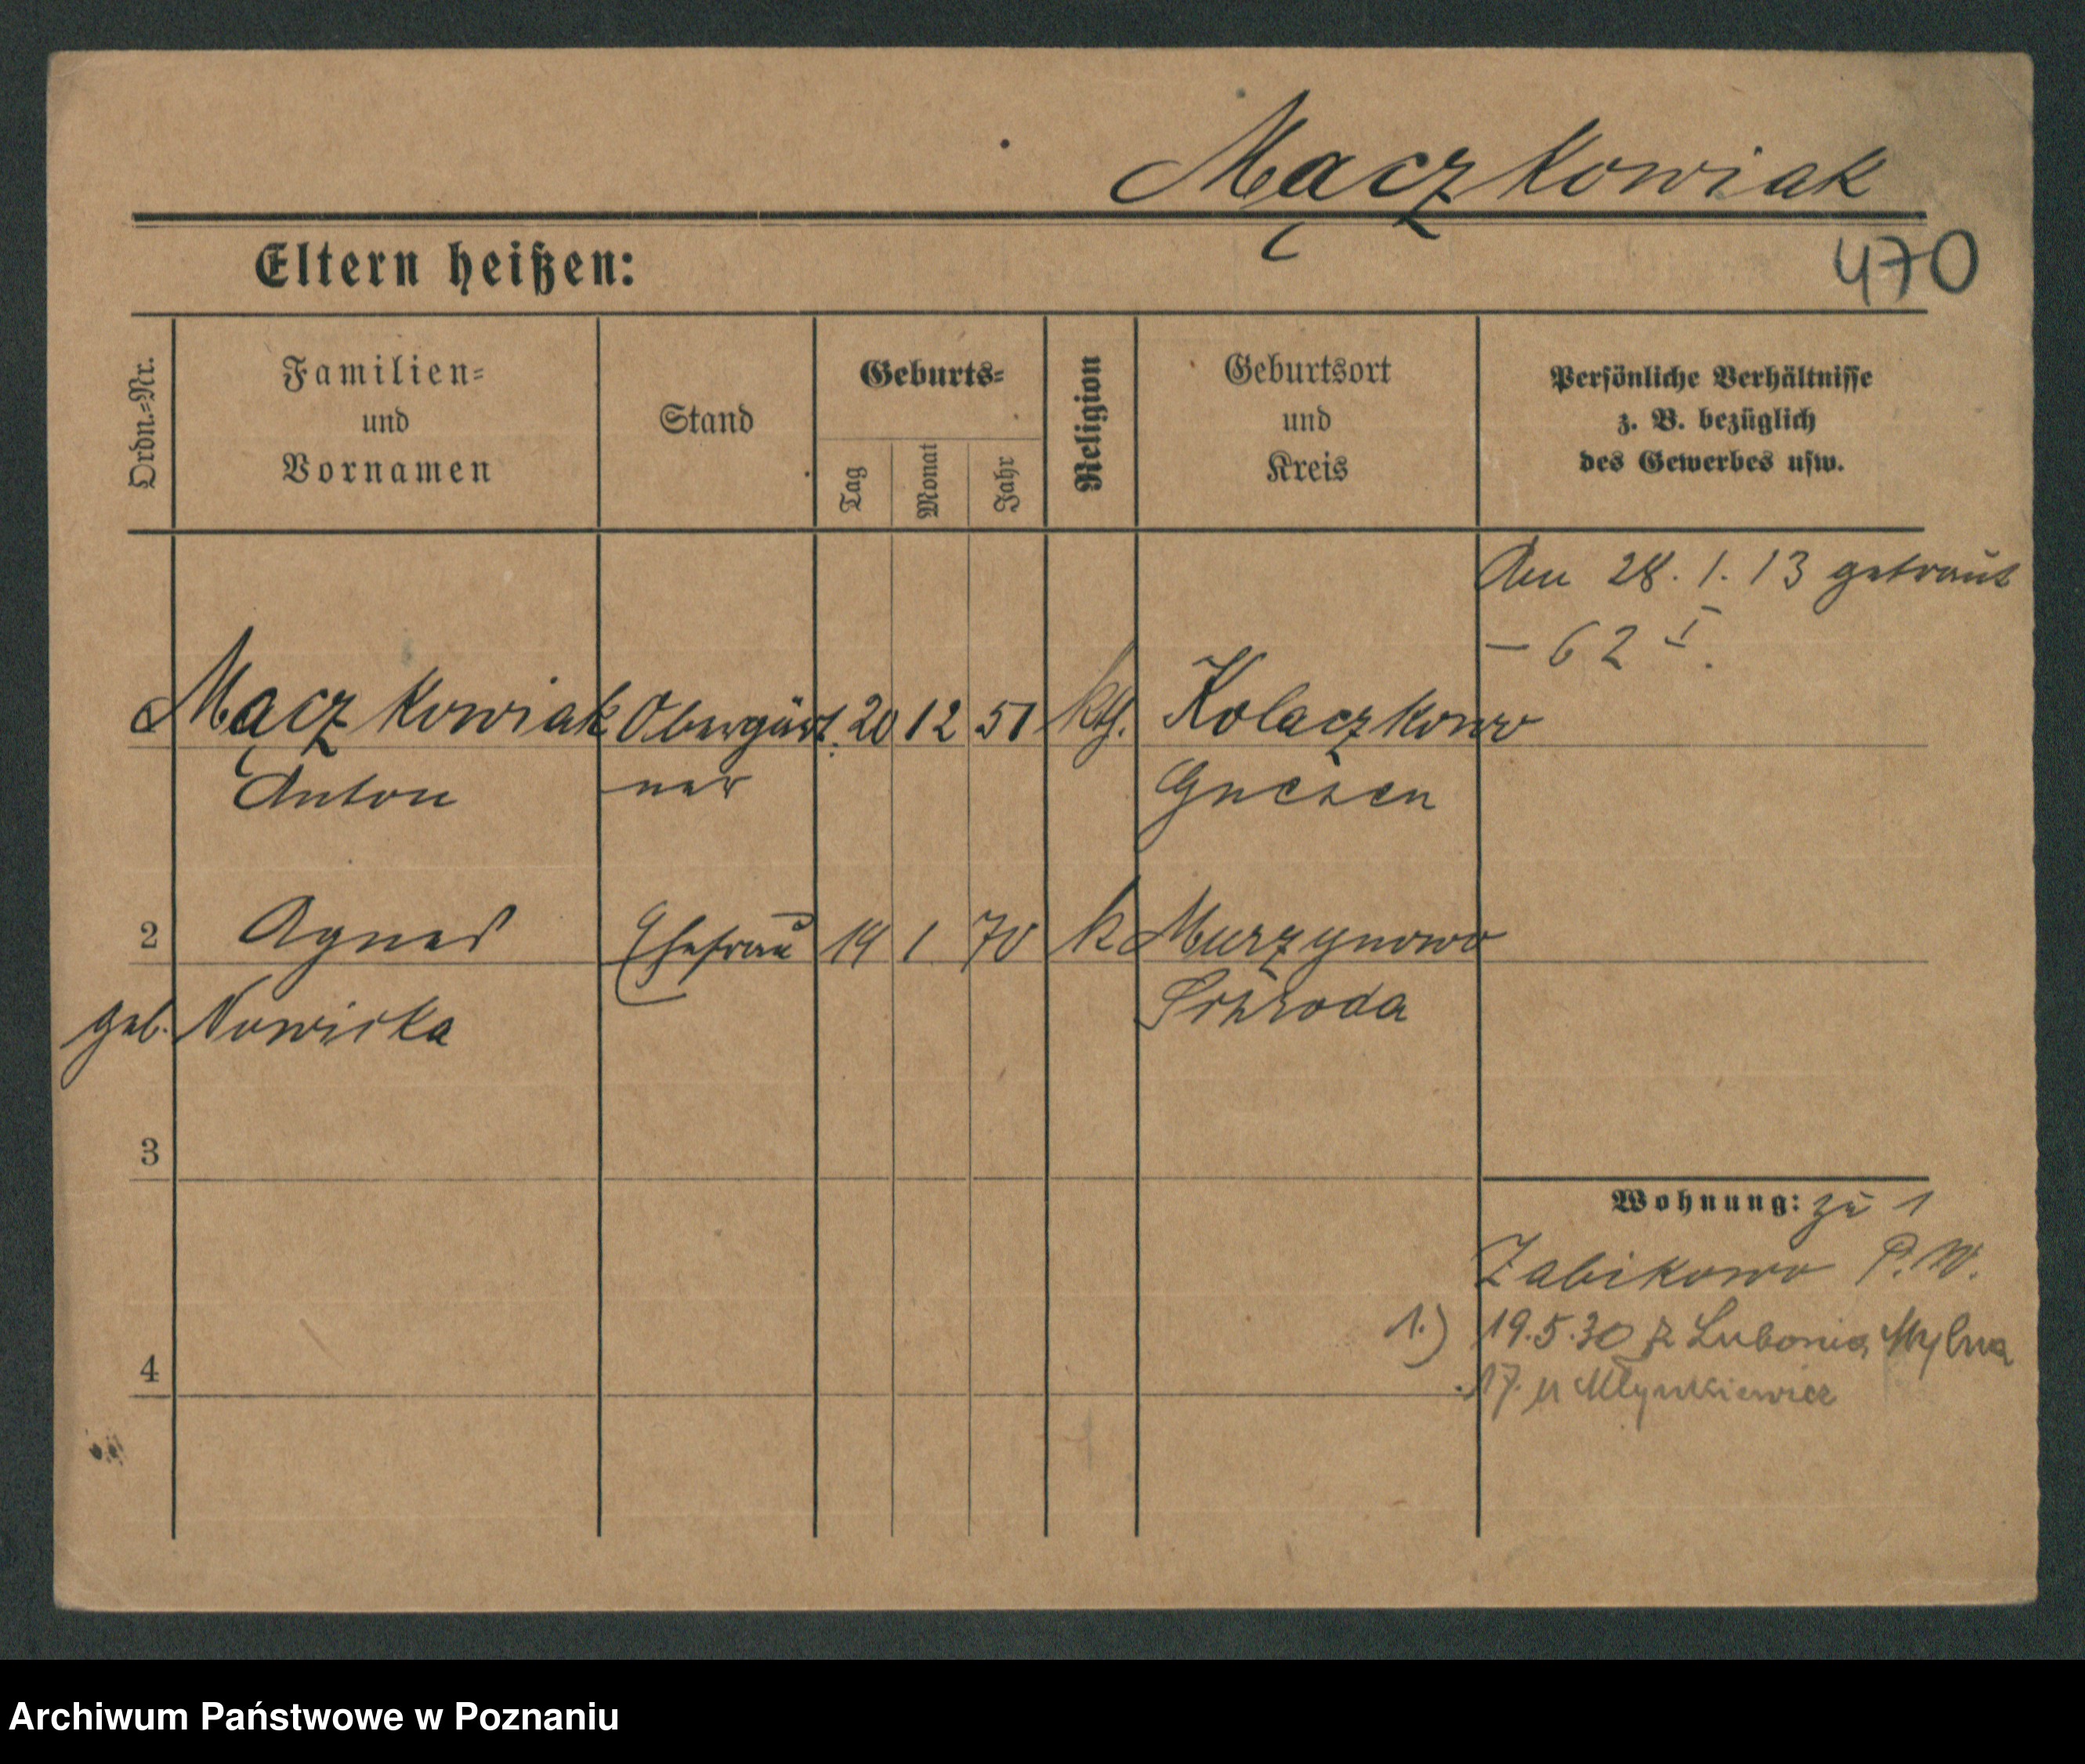 Mączkowiak
470
Eltern heißen:
Ordn.=Nr.
Familien=
und
Vornamen
Stand
Geburts=
Tag
Monat
Jahr
Religion
Geburtsort
und
Kreis
Persönliche Verhältnisse
z. B. bezüglich
des Gewerbes usw.
Am 28. 1. 13 getraut
– 62 I.
Mączkowiak Obergärt. 20 12 51 kth. Kolaczkowo
Anton ner Gnesen
2 Agnes Ehefrau 19 1 70 k Murzynowo
geb. Nowicka Schroda
3
Wohnung: zu 1
Zabikowo P. W.
1.) 19.5.30 z Lubonia, Mylna
4
17. u Młynkiewicz
Archiwum Państwowe w Poznaniu